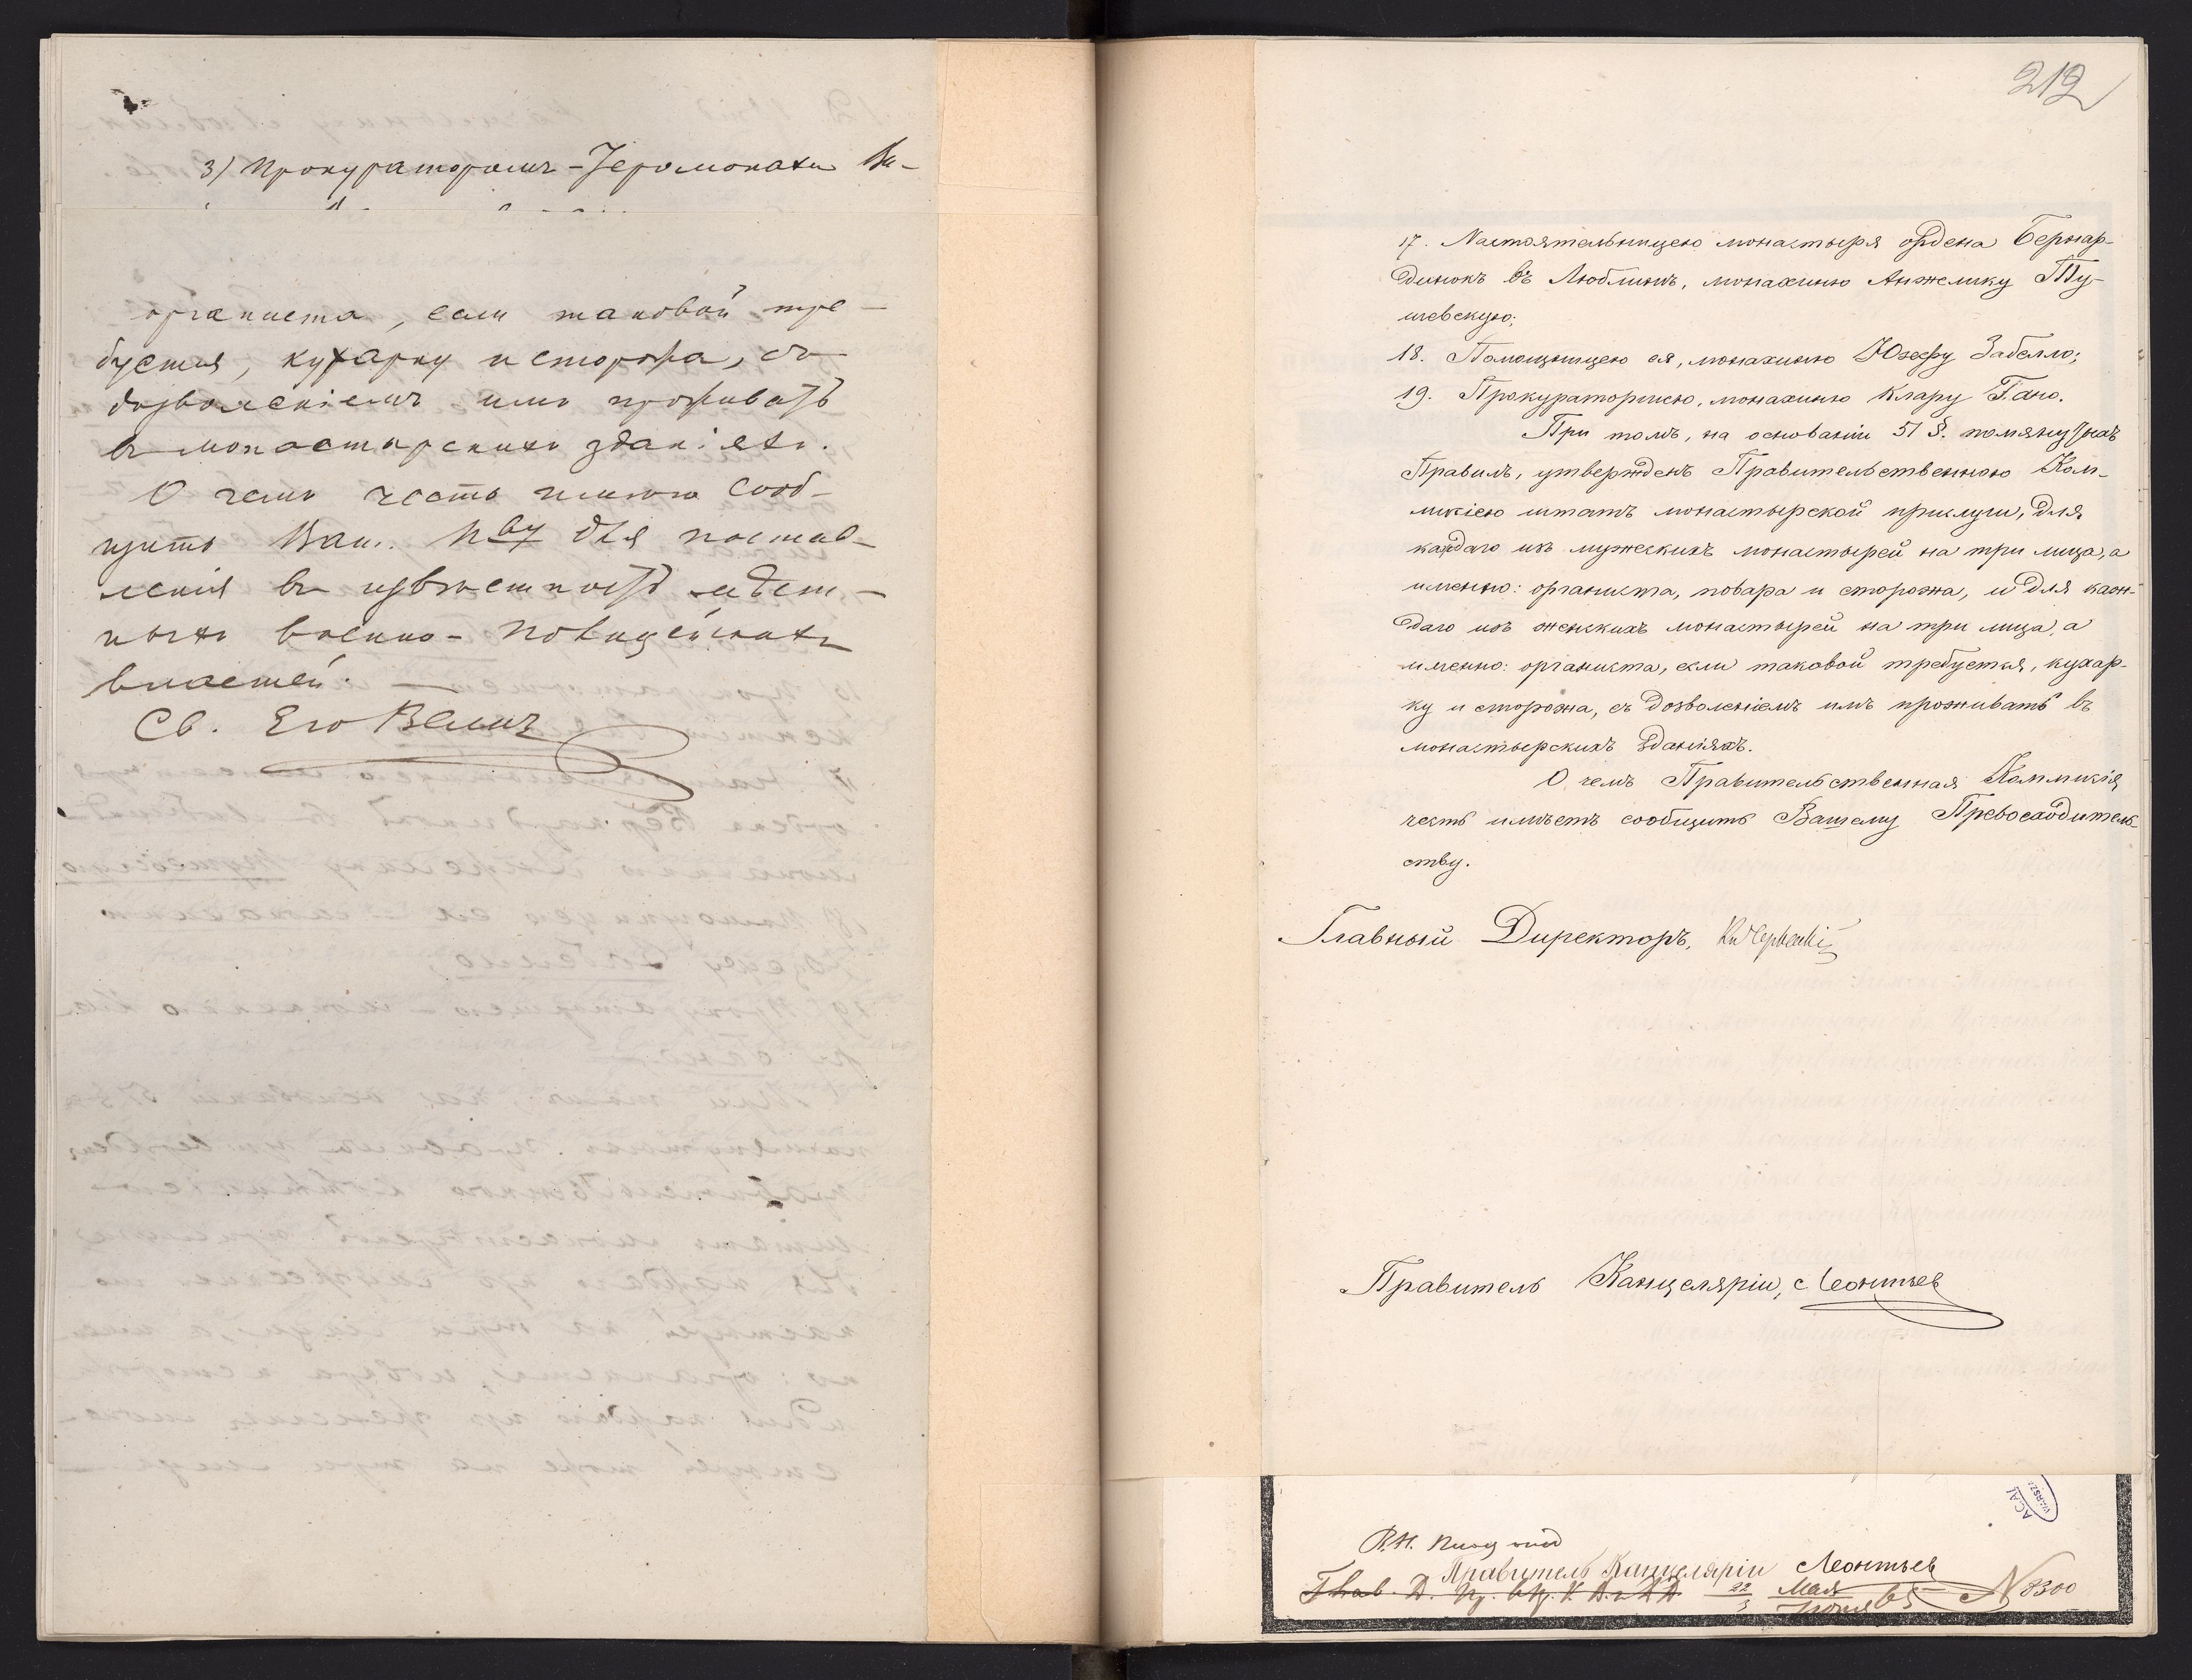 3) Прокураторомъ - Іеромонаха
органиста, если таковой тре-
буется, кухарку и сторожа, съ
дозволеніемъ имъ проживать
въ монастырскихъ зданіяхъ.
О чемъ честь имѣю сооб-
щить Ваш. П-ву для постав-
ленія въ извѣстность мѣст-
ныхъ военно-полицейскихъ
властей.
Св.
212
17. Настоятельницею монастыря ордена Бернар-
динокъ въ Люблинѣ, монахиню Анжелику Ту-
шевскую;
18. Помощницею ея, монахиню Юзефу Забелло;
19. Прокураторшею, монахиню Клару Гано.
При томъ, на основаніи 51 §. помянутыхъ
Правилъ, утвержденъ Правительственною Ком-
мисіею штатъ монастырской прислуги, для
каждаго изъ мужскихъ монастырей на три лица, а
именно: органиста, повара и сторожа, и для каж-
даго изъ женскихъ монастырей на три лица, а
именно: органиста, если таковой требуется, кухар-
ку и сторожа, съ дозволеніемъ имъ проживать въ
монастырскихъ зданіяхъ.
О чемъ Правительственная Коммисія
честь имѣетъ сообщить Вашему Превосходитель-
ству.
Главный Директоръ, Кн Черкаскій
Правитель Канцеляріи, Леонтьев
Правитель Канцеляріи Леонтьев
22/3 Мая/Іюня 65 N 8300